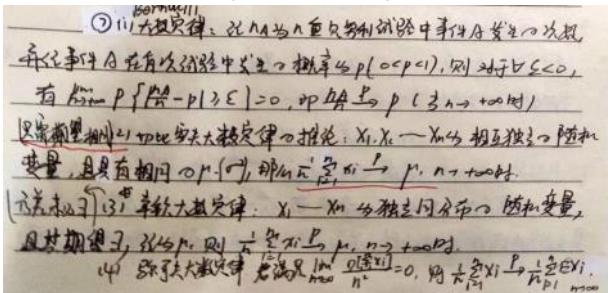 Bernoulli
② (1) 大数定律：设 nA 为 n 重贝努利试验中事件A发生的次数,
并记事件A在每次试验中发生的概率为p(0<p<1), 则对于∀ε<0,
有 lim n→∞ P{|nA/n - p| ≥ ε} = 0, 即 nA/n →P p (当 n→+∞时)
只需期望相同 (2) 切比雪夫大数定律的推论: X1,X2 … Xn为相互独立的随机
变量, 且具有相同的μ,(σ²), 那么 1/n Σ(i=1→n) Xi →P μ, n→+∞时.
(3) 辛钦大数定律: X1 … Xn 为独立同分布的随机变量,
且其期望∃, 记为μ, 则 1/n Σ(i=1→n) Xi →P μ, n→+∞时.
(4) 大数定律 若满足 lim n→∞ D[ΣXi]/n² = 0, 则 1/n Σ(i=1→n) Xi →P 1/n Σ(i=1→n) EXi, n→∞